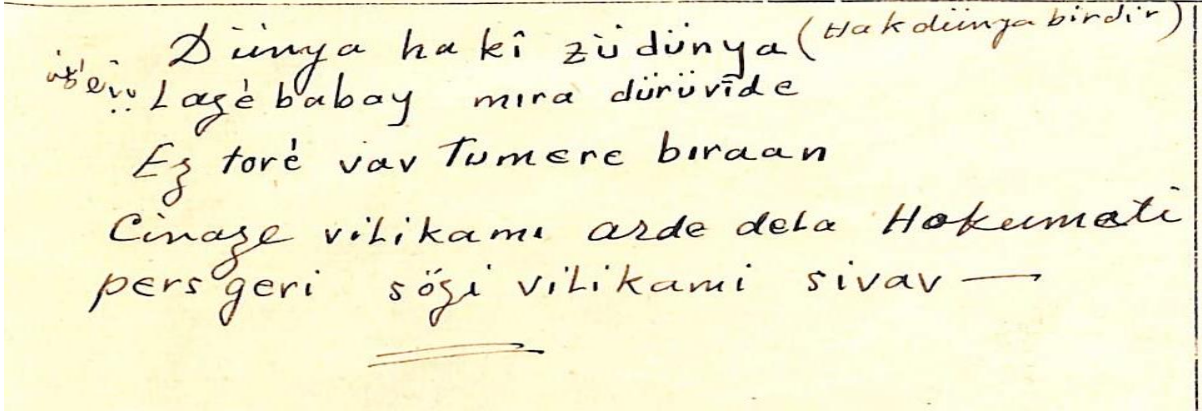 Dünya hakî zùdünya (Hak dünya birdir)
Lazè babay mıra dürüvîde
Ez torè vav Tumere bıraan
Cinaze vilikamı arde dela Hokumati
persgeri sözi vilikami sivav —